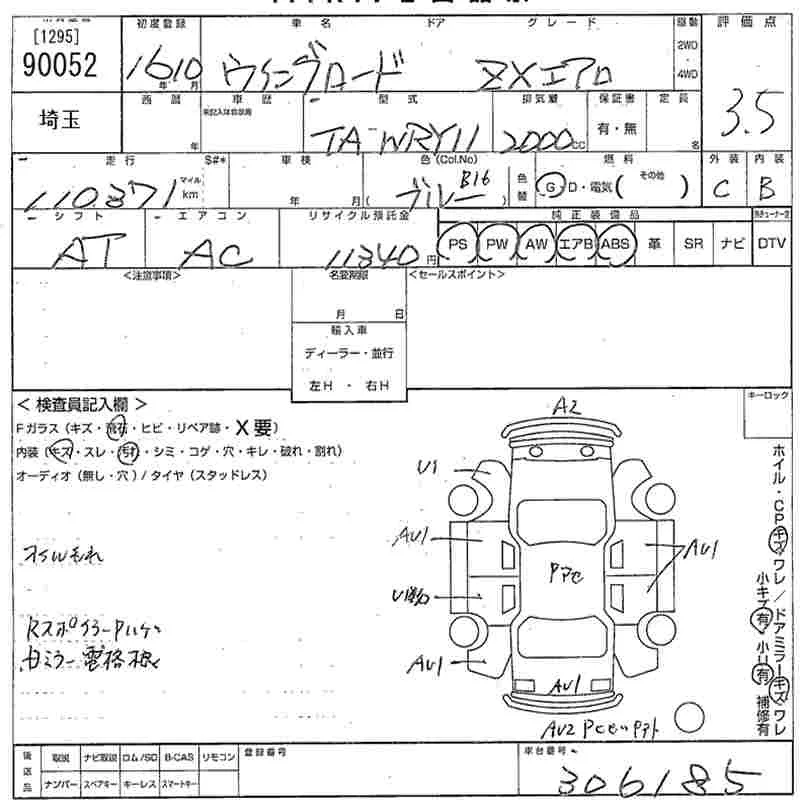 [1295]
90052
初度登録
車名
ドア
グレード
駆動
評価点
1610
年 月
ウイングロード
ZXエアロ
2WD
4WD
3.5
埼玉
西暦
年
車歴
型式
TA-WRY11
排気量
2000cc
保証書
有・無
定員
名
走行
S#*
車検
色(Col.No)
燃料
外装
内装
110,371
マイル
km
年 月
ブルー B16
色替
G D・電気(その他)
C
B
シフト
エアコン
リサイクル預託金
純正装備品
AT
AC
11340円
PS PW AW エアB ABS 革 SR ナビ DTV
<注意事項>
名変期限
<セールスポイント>
月 日
輸入車
ディーラー・並行
左H・右H
<検査員記入欄>
キーロック
Fガラス(キズ・飛石・ヒビ・リペア跡・X要)
内装(キズ・スレ・汚れ・シミ・コゲ・穴・キレ・破れ・割れ)
オーディオ(無し・穴)/タイヤ(スタッドレス)
オイルもれ
A2
U1
AU1
AU1
AU1
AU1
AU2
ホイル・CPキズワレ/ドアミラーキズワレ
小キズ有 小U有 補修有
後送品
取説 ナビ取説 ロム/SD B-CAS リモコン
ナンバー スペアキー キーレス スマートキー
登録番号
車台番号
306185